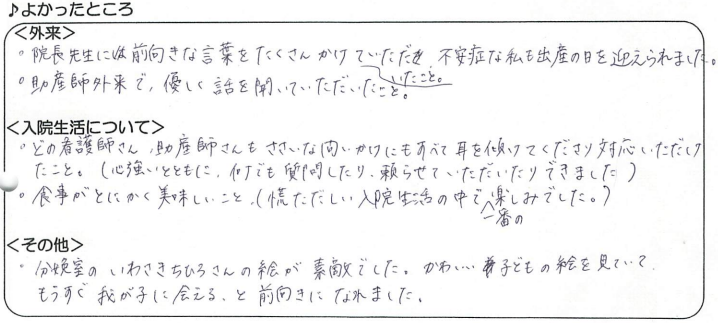 ♪よかったところ
<外来>
・院長先生には前向きな言葉をたくさんかけていただき、不安症な私も出産の日を迎えられました。
いたこと。
・助産師外来で、優しく話を聞いていただいたこと。
<入院生活について>
・どの看護師さん、助産師さんもささいな問いかけにもすべて耳を傾けてくださり対応いただけ
たこと。(心強いとともに、何でも質問したり、頼らせていただいたりできました)
・食事がとにかく美味しいこと、(慌ただしい入院生活の中で一番の楽しみでした。)
<その他>
・分娩室のいわさきちひろさんの絵が素敵でした。かわいい子どもの絵を見ていて、
もうすぐ我が子に会える、と前向きになれました。